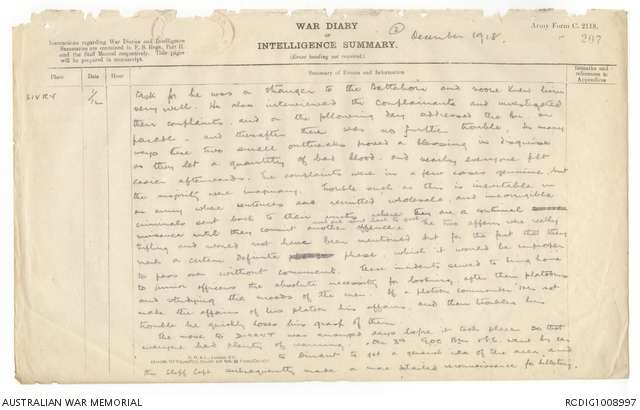 WAR DIARY
or
INTELLIGENCE SUMMARY.
(Erase heading not required.)
December 1918.
Army Form C. 2118.
297
Instructions regarding War Diaries and Intelligence
Summaries are contained in F. S. Regs., Part II.
and the Staff Manual respectively. Title pages
will be prepared in manuscript.
Place
Date
Hour
Summary of Events and Information
Remarks and
references to
Appendices
SIVRY
task for he was a stranger to the Battalion and none knew him
very well. He also interviewed the complainants and investigated
their complaints, and on the following day addressed the Bn. on
parade, and thereafter there was no further trouble. In many
ways these two small outbreaks proved a blessing in disguise
as they let a quantity of bad blood, and nearly everyone felt
easier afterwards. The complaints were in a few cases genuine but
the majority were imaginary. Trouble such as this is inevitable in
an army where sentences are remitted wholesale, and incorrigible
criminals sent back to their units where they are a continual
nuisance until they commit another offence and are sent back to
The two affairs were really
trifling and would not have been mentioned but for the fact that they
mark a certain definite phase, which it would be improper
to pass over without comment. These incidents served to bring home
to junior officers the absolute necessity for looking after their platoons
and studying the moods of the men. If a platoon commander does not
make the affairs of his platoon his affairs, and their troubles his
trouble he quickly loses his grasp of them.
The move to was arranged days before it took place so that
everyone had plenty of warning. On 3rd GOC Bde went by car
to Dinant to get a general idea of the area, and
the Staff Capt. subsequently made a more detailed reconnaissance for billeting
AUSTRALIAN WAR MEMORIAL
RCDIG1008997